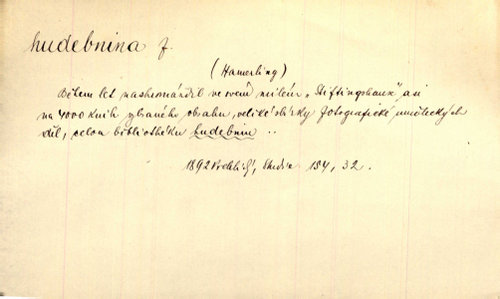 hudebnina f.
(Hamerling)
Během let nashromáždil ve svém milém „Stiftingshaus“ asi
na 4000 knih výbavného obsahu, veliké sbírky fotografické uměleckých
děl, celou bibliotheku hudebnin ..
1892 Vrchlický, Studie 154, 32.